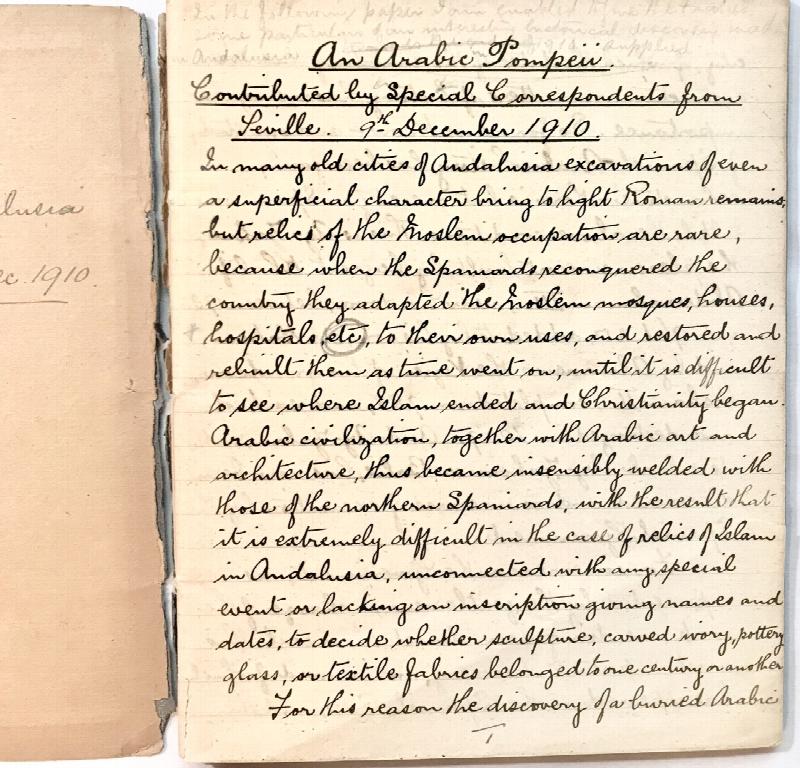 lusia
ec. 1910.
In the following paper I am enabled to
some particulars of an interesting historical discovery made
in Andalusia supplied
An Arabic Pompeii.
Contributed by Special Correspondents from
Seville. 9th December 1910.
In many old cities of Andalusia excavations of even
a superficial character bring to light Roman remains,
but relics of the Moslem occupation are rare,
because when the Spaniards reconquered the
country they adapted the Moslem mosques, houses,
+ hospitals, etc, to their own uses, and restored and
rebuilt them as time went on, until it is difficult
to see where Islam ended and Christianity began.
Arabic civilization, together with Arabic art and
architecture, thus became insensibly welded with
those of the northern Spaniards, with the result that
it is extremely difficult in the case of relics of Islam
in Andalusia, unconnected with any special
event or lacking an inscription giving names and
dates, to decide whether sculpture, carved ivory, pottery
glass, or textile fabrics belonged to one century or another
For this reason the discovery of a buried Arabic
1